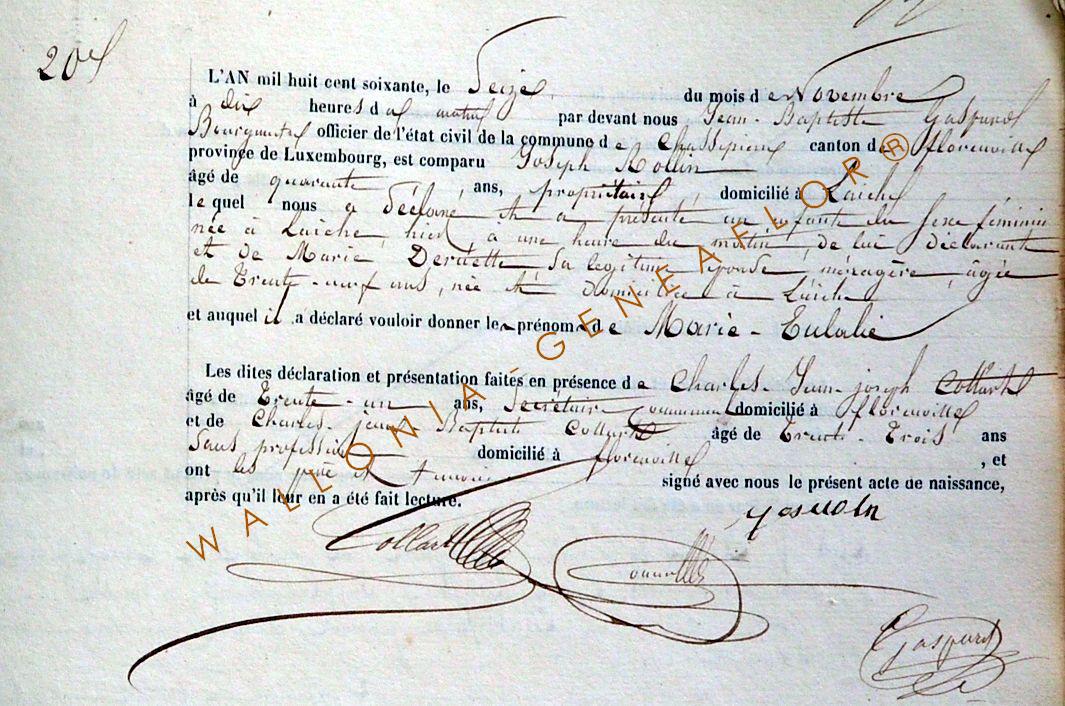 20e
L'AN mil huit cent soixante, le Seize du mois de Novembre
à dix heures du matin par devant nous Jean-Baptiste Gaspard
Bourgmestre officier de l'état civil de la commune de Chassepierre canton de florenville
province de Luxembourg, est comparu Joseph Rollin
âgé de quarante ans, propriétaire, domicilié à Laiche
le quel nous a déclaré et a présenté un enfant du sexe féminin
née à Laiche, hier à une heure du matin, de lui déclarant
et de Marie Deruette, sa légitime épouse, ménagère, âgée
de Trente-neuf ans, née et domiciliée à Laiche
et auquel il a déclaré vouloir donner le prénom de Marie-Eulalie
Les dites déclaration et présentation faites en présence de Charles-Jean-joseph Collart
âgé de Trente-un ans, Secrétaire communal domicilié à florenville
et de Charles-jean-Baptiste Collart âgé de Trente-Trois ans
Sans profession domicilié à florenville, et
ont les père et témoins signé avec nous le présent acte de naissance,
après qu'il leur en a été fait lecture.
Collart
Gaspard
WALLONIA-GENEAFLOR ®